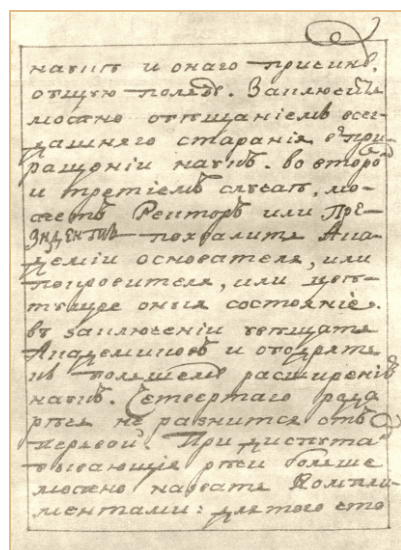 наукъ и онаго присине.
общую ползѣ. Заключенїе
можно отвѣщанїемъ все-
дашняго старанїя в при-
ращенїи наукъ. во второ
и третїемъ случаѣ, мо-
жетъ Ректоръ или Пре-
зидентъ похвалить Ака-
демїи основателя, или
покровителя, или цвѣ-
тущее оныя состоянїе.
въ заключенїи увѣщать
Академиковъ и ободрять
къ болшемѣ расширенїю
наукъ. Четвертаго рода
рѣчь не разнится отъ
первой. При диспута
бывающїя рѣчи больше
можно назвать Компли-
ментами: для того что